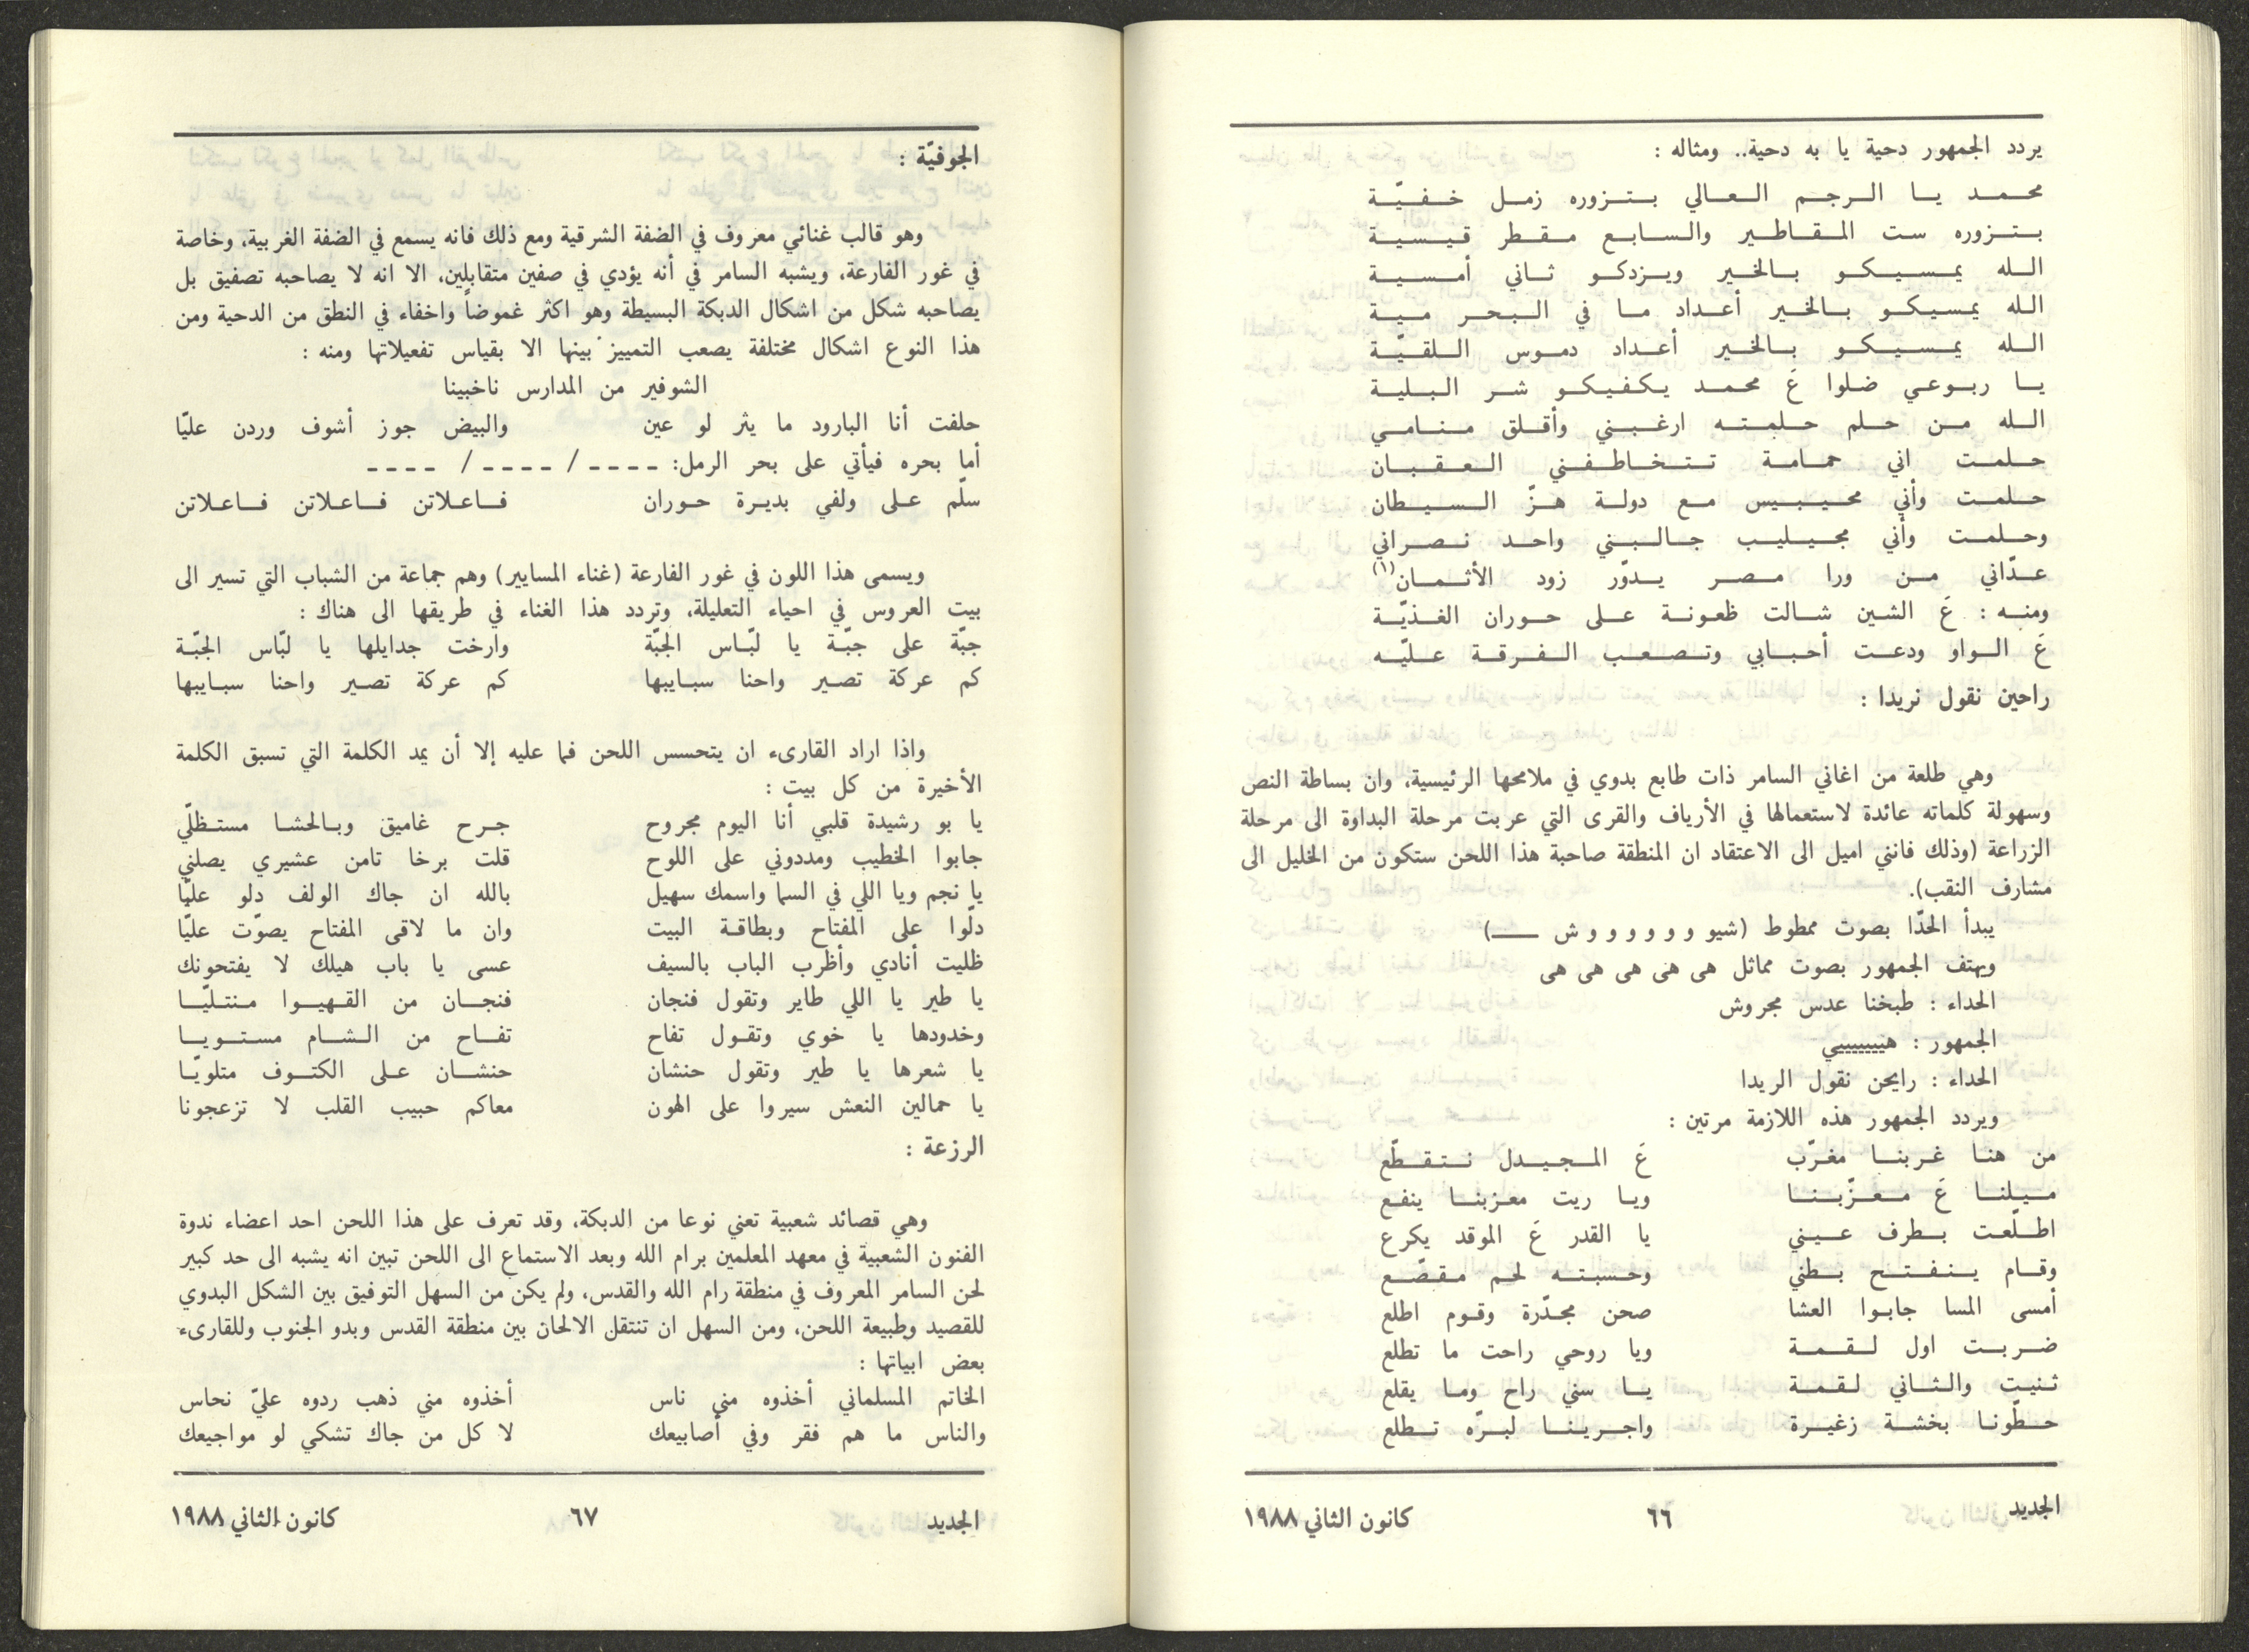 يردد الجمهور دحية يا به دحية.. ومثاله :
محمد يا الرجم العالي بتزوره زمل خفيّة
بتزوره ست المقاطير والسابع مقطر قيسية
الله يمسيكو بالخير ويزدكو ثاني أمسية
الله يمسيكو بالخير أعداد ما في البحر مية
الله يمسيكو بالخير أعداد دموس اللقيّة
يا ربوعي ضلوا عَ محمد يكفيكو شر البلية
الله من حلم حلمته ارغبني وأقلق منامي
حلمت اني حمامة تتخاطفني العقبان
حلمت وأني محيبيس مع دولة هزّ السيطان
وحلمت وأني مجيليب جالبني واحد نصراني
عدّاني من ورا مصر يدوّر زود الأثمان(١)
ومنه : عَ الشين شالت ظعونة على حوران الغذيّة
عَ الواو ودعت أحبابي وتصعب الفرقة عليّه
راحين نقول نريدا :
وهي طلعة من اغاني السامر ذات طابع بدوي في ملامحها الرئيسية، وان بساطة النص
وسهولة كلماته عائدة لاستعمالها في الأرياف والقرى التي عربت مرحلة البداوة الى مرحلة
الزراعة (وذلك فانني اميل الى الاعتقاد ان المنطقة صاحبة هذا اللحن ستكون من الخليل الى
مشارف النقب).
يبدأ الحدّا بصوت ممطوط (شيو و و و و و ش ــــ)
ويهتف الجمهور بصوت مماثل هى هى هى هى هى
الحداء : طبخنا عدس مجروش
الجمهور : هييييييي
الحداء : رايحن نقول الريدا
ويردد الجمهور هذه اللازمة مرتين :
من هنا غربنا مغرّب عَ المجيدل نتقطّع
ميلنا عَ معزّبنا ويا ريت معزبنا ينفع
اطلّعت بطرف عيني يا القدر عَ الموقد يكرع
وقام ينفتح بطني وحسبته لحم مقصّع
أمسى المسا جابوا العشا صحن مجدّرة وقوم اطلع
ضربت اول لقمة ويا روحي راحت ما تطلع
ثنيت والثاني لقمة يا سني راح وما يقلع
حطّونا بخشة زغيرة واجرينا لبرّه تطلع
الجديد ٦٦ كانون الثاني ١٩٨٨
الجوفيّة :
وهو قالب غنائي معروف في الضفة الشرقية ومع ذلك فانه يسمع في الضفة الغربية، وخاصة
في غور الفارعة، ويشبه السامر في أنه يؤدي في صفين متقابلين، الا انه لا يصاحبه تصفيق بل
يصاحبه شكل من اشكال الدبكة البسيطة وهو اكثر غموضاً واخفاء في النطق من الدحية ومن
هذا النوع اشكال مختلفة يصعب التمييز بينها الا بقياس تفعيلاتها ومنه :
الشوفير من المدارس ناخبينا
حلفت أنا البارود ما يثر لو عين والبيض جوز أشوف وردن عليّا
أما بحره فيأتي على بحر الرمل: ـ ـ ـ ـ / ـ ـ ـ ـ / ـ ـ ـ ـ
سلّم على ولفي بديرة حوران فاعلاتن فاعلاتن فاعلاتن
ويسمى هذا اللون في غور الفارعة (غناء المسايير) وهم جماعة من الشباب التي تسير الى
بيت العروس في احياء التعليلة، وتردد هذا الغناء في طريقها الى هناك :
جبّة على جبّة يا لبّاس الجبّة وارخت جدايلها يا لبّاس الجبّة
كم عركة تصير واحنا سبايبها كم عركة تصير واحنا سبايبها
واذا اراد القارىء ان يتحسس اللحن فما عليه إلا أن يمد الكلمة التي تسبق الكلمة
الأخيرة من كل بيت :
يا بو رشيدة قلبي أنا اليوم مجروح جرح غاميق وبالحشا مستظلّي
جابوا الخطيب ومددوني على اللوح قلت برخا تامن عشيري يصلني
يا نجم ويا اللي في السما واسمك سهيل بالله ان جاك الولف دلو عليّا
دلّوا على المفتاح وبطاقة البيت وان ما لاقى المفتاح يصوّت عليّا
ظليت أنادي وأظرب الباب بالسيف عسى يا باب هيلك لا يفتحونك
يا طير يا اللي طاير وتقول فنجان فنجان من القهيوا منتليّا
وخدودها يا خوي وتقول تفاح تفاح من الشام مستويا
يا شعرها يا طير وتقول حنشان حنشان على الكتوف متلويّا
يا حمالين النعش سيروا على الهون معاكم حبيب القلب لا تزعجونا
الرزعة :
وهي قصائد شعبية تعني نوعا من الدبكة، وقد تعرف على هذا اللحن احد اعضاء ندوة
الفنون الشعبية في معهد المعلمين برام الله وبعد الاستماع الى اللحن تبين انه يشبه الى حد كبير
لحن السامر المعروف في منطقة رام الله والقدس، ولم يكن من السهل التوفيق بين الشكل البدوي
للقصيد وطبيعة اللحن، ومن السهل ان تنتقل الالحان بين منطقة القدس وبدو الجنوب وللقارىء
بعض ابياتها :
الخاتم المسلماني أخذوه مني ناس أخذوه مني ذهب ردوه عليّ نحاس
والناس ما هم فقر وفي أصابيعك لا كل من جاك تشكي لو مواجيعك
الجديد ٦٧ كانون الثاني ١٩٨٨